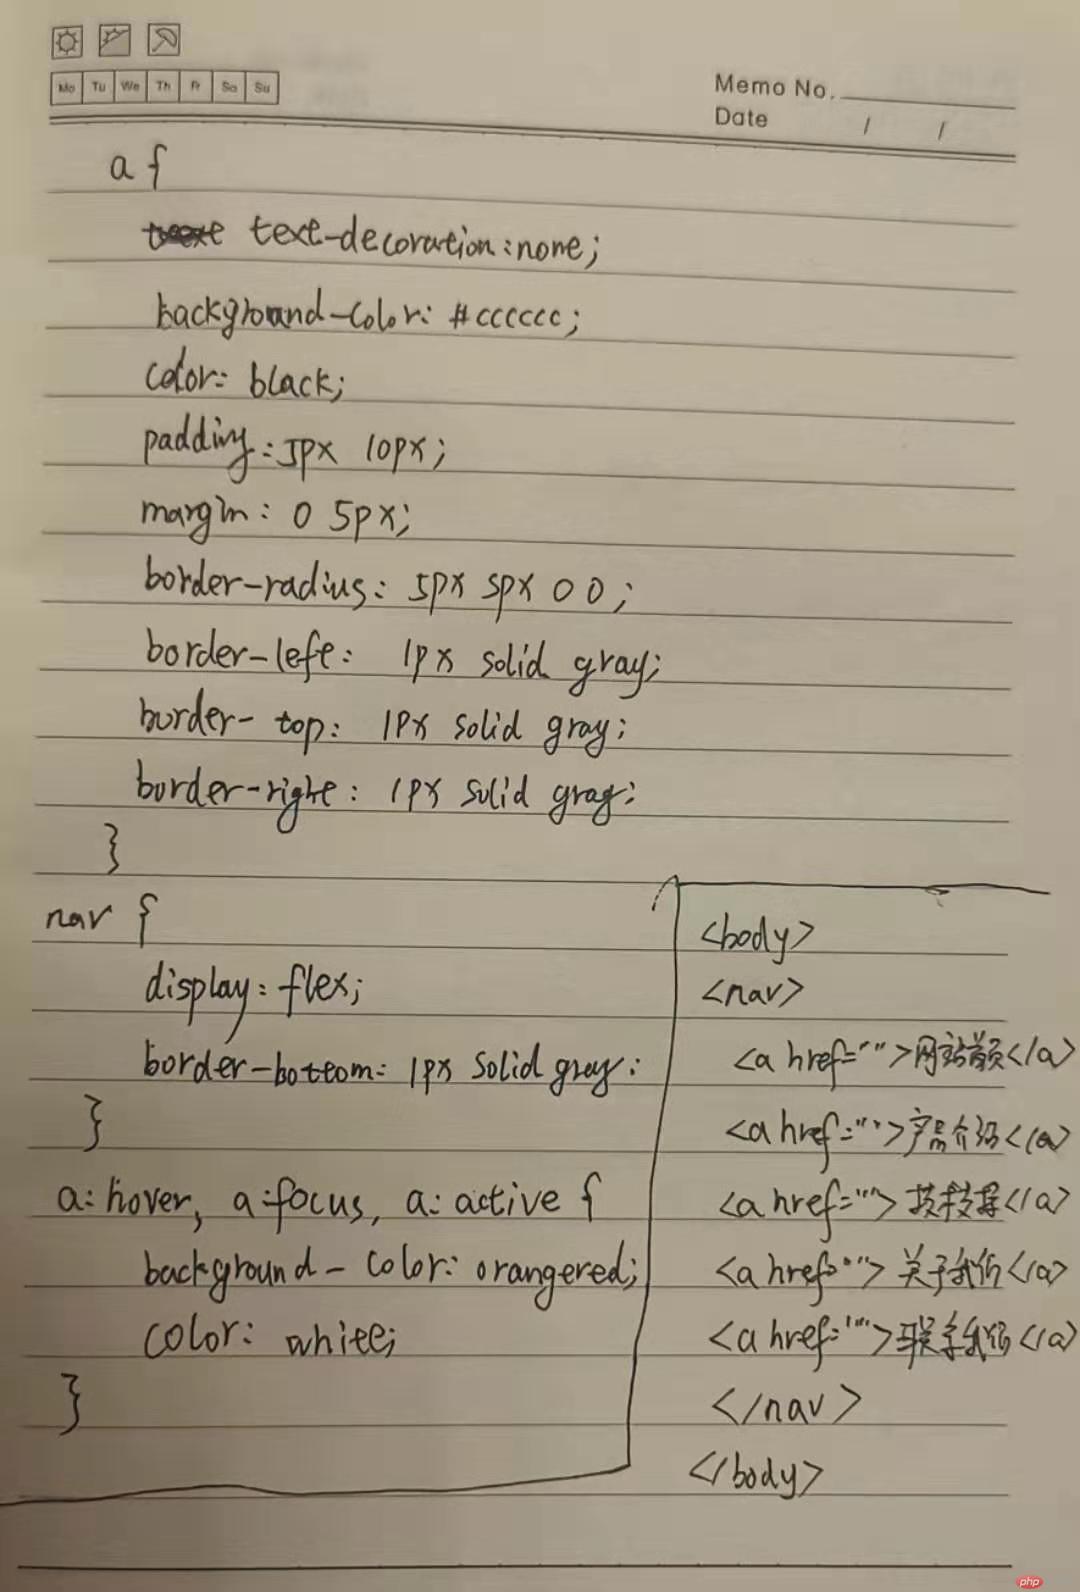 Mo Tu We Th Fr Sa Su
Memo No.
Date / /
a {
text-decoration:none;
background-color: #cccccc;
color: black;
padding: 5px 10px;
margin: 0 5px;
border-radius: 5px 5px 0 0;
border-left: 1px solid gray;
border-top: 1px solid gray;
border-right: 1px solid gray;
}
nav {
display: flex;
border-bottom: 1px solid gray;
}
a:hover, a:focus, a:active {
background-color: orangered;
color: white;
}
<body>
<nav>
<a href="">网站首页</a>
<a href="">产品介绍</a>
<a href=""></a>
<a href="">关于我们</a>
<a href="">联系我们</a>
</nav>
</body>
php